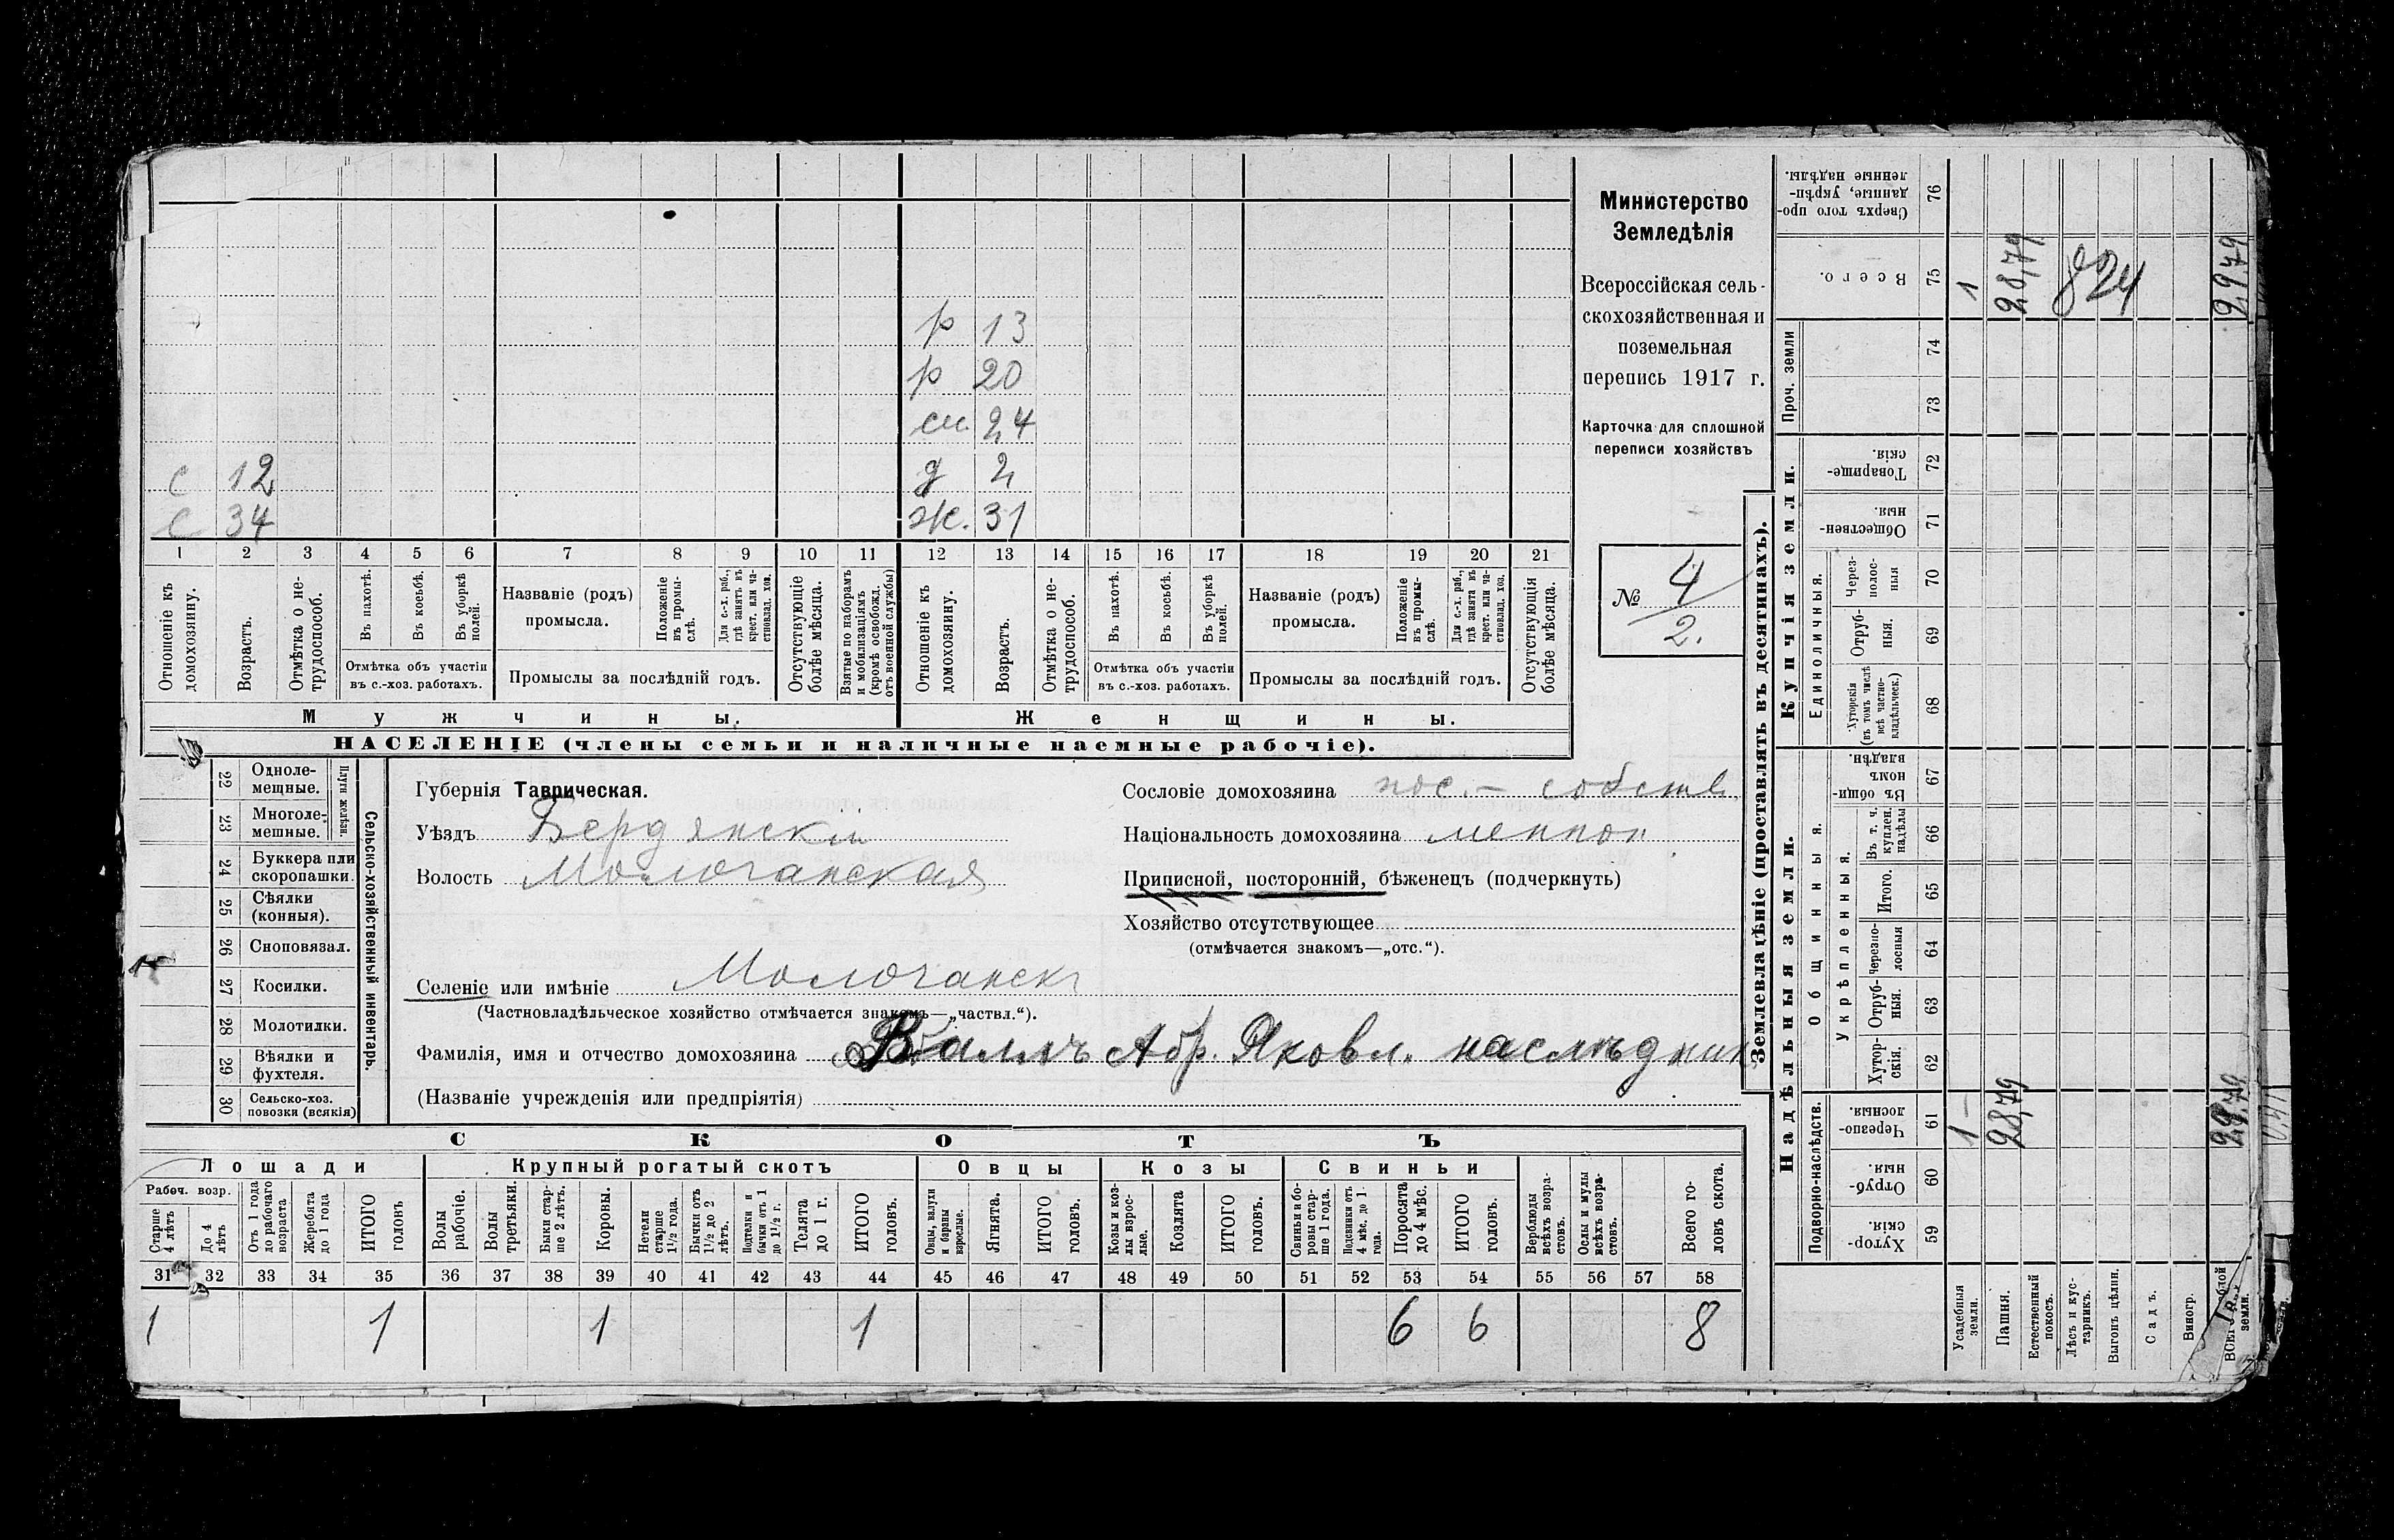 Министерство
Земледѣлія
Всероссійская сель-
скохозяйственная и
поземельная
перепись 1917 г.
Карточка для сплошной
переписи хозяйствъ
№ 4
2.
р 13
р 20
см. 24
с 12 д 2
с 34 ж. 31
1 2 3 4 5 6 7 8 9 10 11 12 13 14 15 16 17 18 19 20 21
Отношеніе къ домохозяину.
Возрастъ.
Отмѣтка о не-трудоспособ.
Въ пахотѣ.
Въ косьбѣ.
Въ уборкѣ полей.
Отмѣтка объ участіи
въ с.-хоз. работахъ.
Названіе (родъ)
промысла.
Положеніе въ промы-слѣ.
Для с.-х. раб., гдѣ занятъ въ крест. или ча-стновлад. хоз.
Промыслы за послѣдній годъ.
Отсутствующіе болѣе мѣсяца.
Взятые по наборамъ и мобилизаціямъ (кромѣ освобожд. отъ военной службы)
Отношеніе къ домохозяину.
Возрастъ.
Отмѣтка о не-трудоспособ.
Въ пахотѣ.
Въ косьбѣ.
Въ уборкѣ полей.
Отмѣтка объ участіи
въ с.-хоз. работахъ.
Названіе (родъ)
промысла.
Положеніе въ промы-слѣ.
Для с.-х. раб., гдѣ занята въ крест. или ча-стновлад. хоз.
Промыслы за послѣдній годъ.
Отсутствующія болѣе мѣсяца.
Мужчины. Женщины.
НАСЕЛЕНІЕ (члены семьи и наличные наемные рабочіе).
Сельско-хозяйственный инвентарь.
Плуги желѣзн.
22 Одноле-мещные.
23 Многоле-мешные.
24 Буккера или скоропашки.
25 Сѣялки (конныя).
26 Сноповязал.
27 Косилки.
28 Молотилки.
29 Вѣялки и фухтеля.
30 Сельско-хоз. повозки (всякія)
Губернія Таврическая.
Уѣздъ Бердянскій
Волость Молочанская
Селеніе или имѣніе Молочанскъ
(Частновладѣльческое хозяйство отмѣчается знакомъ—„частвл.“).
Фамилія, имя и отчество домохозяина Валлъ Абр. Яковл. наслѣдник
(Названіе учрежденія или предпріятія)
Сословіе домохозяина пос. - собств.
Національность домохозяина меннон
Приписной, посторонній, бѣженецъ (подчеркнуть)
Хозяйство отсутствующее
(отмѣчается знакомъ—„отс.“).
СКОТЪ
Лошади Крупный рогатый скотъ Овцы Козы Свиньи
Рабоч. возр.
Старше 4 лѣтъ
До 4 лѣтъ
Отъ 1 года до рабочаго возраста
Жеребята до 1 года
ИТОГО головъ
Волы рабочіе.
Волы третьяки.
Быки стар-ше 2 лѣтъ.
Коровы.
Нетели старше 1½ года.
Бычки отъ 1½ до 2 лѣтъ.
Подтелки и бычки отъ 1 до 1½ г.
Телята до 1 г.
ИТОГО головъ.
Овцы, валухи и бараны взрослые.
Ягнята.
ИТОГО головъ.
Козы и коз-лы взрос-лые.
Козлята
ИТОГО головъ.
Свиньи и бо-ровы стар-ше 1 года.
Подсвинки отъ 4 мѣс. до 1 года.
Поросята до 4 мѣс.
ИТОГО головъ.
Верблюды всѣхъ возра-стовъ.
Ослы и мулы всѣхъ возра-стовъ.
Всего го-ловъ скота.
31 32 33 34 35 36 37 38 39 40 41 42 43 44 45 46 47 48 49 50 51 52 53 54 55 56 57 58
1 1 1 1 6 6 8
Землевладѣніе (проставлять въ десятинахъ).
Надѣльныя земли. Купчія земли. Проч. земли
Подворно-наслѣдств.
Общинныя.
Укрѣпленныя.
Единоличныя.
Сверхъ того про-данные, укрѣп-ленные надѣлы. 76
Всего. 75 1 28,79 824 29,79
74
73
Товарище-скія. 72
Обществен-ныя. 71
Через-полос-ныя 70
Отруб-ныя. 69
Хуторскія (въ томъ числѣ всѣ частно-владѣльческ.) 68
Въ общи-номъ владѣн. 67
Въ т. ч. куплен. надѣлы 66
Итого. 65
Черезпо-лосныя 64
Отруб-ныя. 63
Хутор-скія. 62
Черезпо-лосныя. 61 1 28,79 29,79
Отруб-ныя. 60
Хутор-скія. 59
Усадебныя земли.
Пашня.
Естественный покосъ.
Лѣсъ и кус-тарникъ.
Выгонъ цѣлин.
Садъ.
Виногр.
земли.